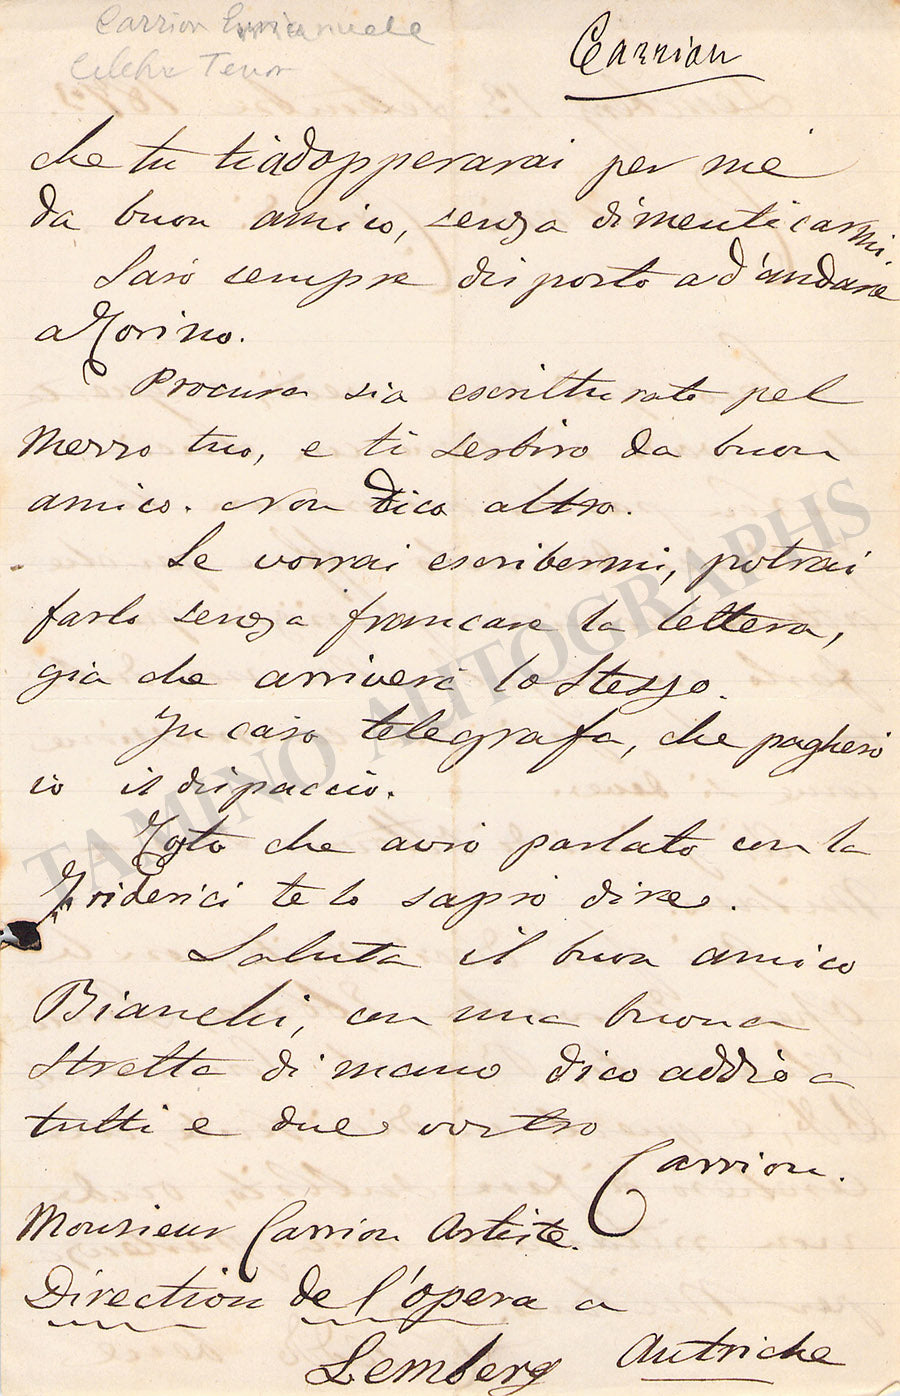 Carrion Emmanuele
Celebre Tenor
Carrion
che tu ti adopperarai per me
da buon amico, senza dimenticarmi.
Sarò sempre disposto ad'andare
a Torino.
Procura sia escritturato pel
mezzo tuo, e ti serbiro da buon
amico. Non dico altro.
Se vorrai escribermi, potrai
farlo senza francare la lettera,
gia che arriverà lo stesso.
In caso telegrafa, che pagherò
io il dispaccio.
Tosto che avrò parlato con la
te lo saprò dire.
Saluta il buon amico
Bianchi, con una buona
stretta di mano dico addio a
tutti e due vostro
Carrion.
Monsieur Carrion Artiste.
Direction de l'opera a
Lemberg Autriche
TAMINO AUTOGRAPHS